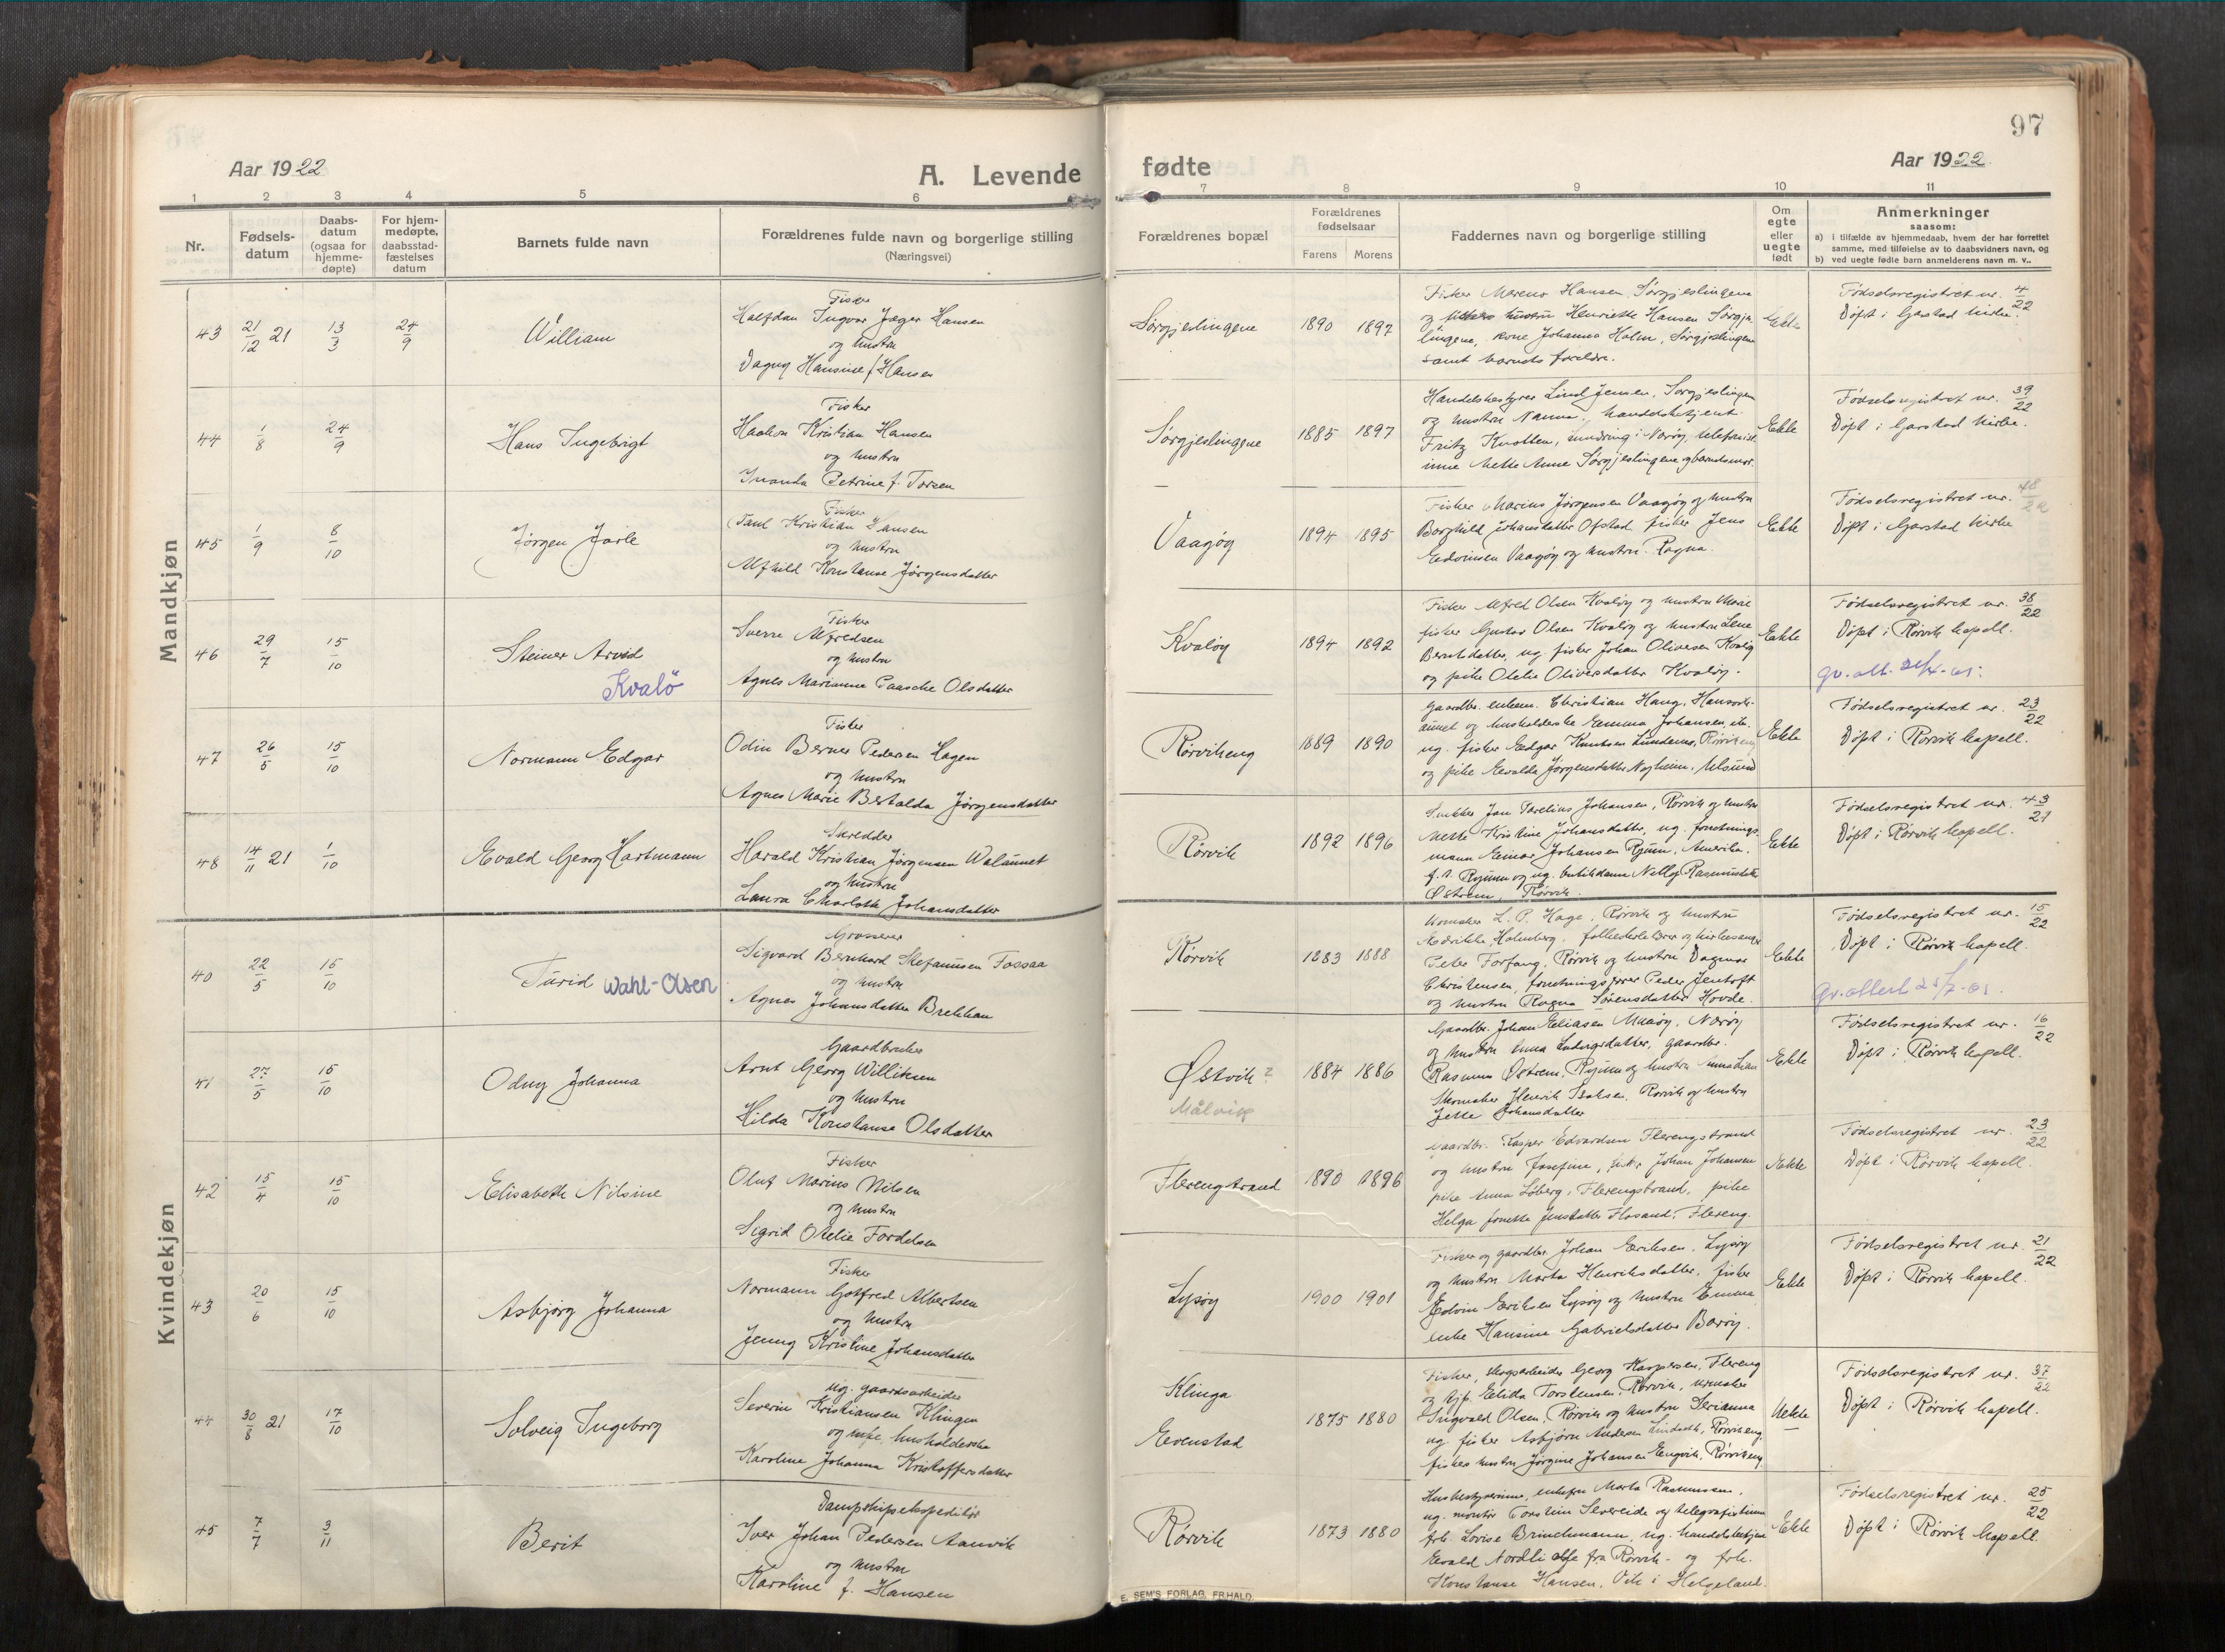 97
Aar 1922
A. Levende
fødte
Aar 1922
1 2 3 4 5 6
7 8 9 10 11
Nr.
Fødsels-
datum
Daabs-
datum
(ogsaa for
hjemme-
døpte)
For hjem-
medøpte,
daabsstad-
fæstelses
datum
Barnets fulde navn
Forældrenes fulde navn og borgerlige stilling
(Næringsvei)
Forældrenes bopæl
Forældrenes
fødselsaar
Farens Morens
Faddernes navn og borgerlige stilling
Om
egte
eller
uegte
født
Anmerkninger
saasom:
a) i tilfælde av hjemmedaab, hvem der har forrettet
samme, med tilføielse av to daabsvidners navn, og
b) ved uegte fødte barn anmelderens navn m. v..
Mandkjøn
43 21/12 21 13/3 24/9 William
Fisker
Halfdan Ingvar Jæger Hansen
og hustru
Dagny Hansine f. Hansen
Sørgjeslingene 1890 1897
Fisker Marenus Hansen, Sørgjeslingene
og hustru Henriette Hansen Sørgje-
lingene, kone Johanna Holm, Sørgjeslingene
samt barnets foreldre.
Ekte
Fødselsregistret nr. 4/22
Døpt i Garstad kirke.
44 1/8 24/9 Hans Ingebrigt
Fisker
Haakon Kristian Hansen
og hustru
Petrine f. Torsen
Sørgjeslingene 1885 1897
Handelsbestyrer Lind Jensen, Sørgjeslingen
og hustru Nanna, handelsbetjent
Fritz Knotten, Nærøy, telefonist-
inne Mette Anne Sørgjeslingene og barnets mor.
Ekte
Fødselsregistret nr. 39/22
Døpt i Garstad kirke.
45 1/9 8/10 Jørgen Jarle
Fisker
Paul Kristian Hansen
og hustru
Alfhild Konstanse Jørgensdatter
Vaagøy 1894 1895
Fisker Marius Jørgensen Vaagøy og hustru
Borghild Johansdatter Ofstad, fisker Jens
Edvinsen Vaagøy og hustru Ragna.
Ekte
Fødselsregistret nr. 48/22
Døpt i Garstad kirke
46 29/7 15/10 Steiner Arvid
Kvalö
Fisker
Sverre Alfredsen
og hustru
Agnes Marianne Paasche Olsdatter
Kvaløy 1894 1892
Fisker Alfred Olsen Kvaløy og hustru Marie
fisker Gustav Olsen Kvaløy og hustru Lene
Berntsdatter, ug. fisker Johan Oliversen Kvaløy
og pike Otelie Oliversdatter Kvaløy.
Ekte
Fødselsregistret nr. 38/22
Døpt i Rørvik kapell.
47 26/5 15/10 Normann Edgar
Fisker
Odin Berner Pedersen Hagen
og hustru
Agnes Marie Bertalda Jørgensdatter
Rørvikeng 1889 1890
Gaardbr. enkem. Christian Haug, Hansvik-
aunet og husholderske Emma Johansen, ib.
ug. fisker Edgar Knutsen Lundenes, Rørvikeng
og pike Evalda Jørgensdatter
Ekte
Fødselsregistret nr. 23/22
Døpt i Rørvik kapell.
48 14/11 21 1/10 Evald Georg Hartmann
Skredder
Harald Kristian Jørgensen Walaunet
og hustru
Laura Charlotte Johansdatter
Rørvik 1892 1896
Snekker Jan Parelius Johansen, Rørvik og hustru
Mette Kristine Johansdatter, ug. forretnings-
mann Einar Johansen Ryum, Amerika,
f. t. Ryum og ug. butikdame Nelly Rasmusdatter
Østrem, Rørvik.
Ekte
Fødselsregistret nr. 43/21
Døpt i Rørvik kapell.
Kvindekjøn
40 22/5 15/10 Turid Wahl-Olsen
Grosserer
Sigvard Bernhard Stefanusen Fossaa
og hustru
Agnes Johansdatter Brekkan
Rørvik 1883 1888
Urmaker L. P. Hage, Rørvik og hustru
Holmberg, folkeskolelærer og kirkesanger
Peter Forfang, Rørvik og hustru Dagmar
Christensen, forretningsfører Peder Jentoft
og hustru Ragna Sørensdatter Hovde.
Ekte
Fødselsregistret nr. 15/22
Døpt i Rørvik kapell.
41 27/5 15/10 Odny Johanna
Gaardbruker
Arnt Georg Williksen
og hustru
Hilda Konstanse Olsdatter
Østvik?
Målvik
1884 1886
Gaardbr. Johan Eliasen Nærøy
og hustru Anna Ludvigsdatter, gaardbr.
Rasmus Østrem, Ryum og hustru
Skomaker Henrik Isaksen, Rørvik og hustru
Jette Johansdatter
Ekte
Fødselsregistret nr. 16/22
Døpt i Rørvik kapell.
42 15/4 15/10 Elisabeth Nilsine
Fisker
Oluf Marius Nilsen
og hustru
Sigrid Otelie Fordelsen
Flerengstrand 1890 1896
Gaardbr. Kasper Edvardsen Flerengstrand
og hustru Josefine, fisker Johan Johansen
pike Anna Løberg, Flerengstrand, pike
Helga Jensdatter Flosand, Flereng.
Ekte
Fødselsregistret nr. 23/22
Døpt i Rørvik kapell.
43 20/6 15/10 Asbjørg Johanna
Fisker
Normann Gotfred Albertsen
og hustru
Jenny Kristine Johansdatter
Lysøy 1900 1901
Fisker og gaardbr. Johan Eriksen, Lysøy
og hustru Marta Henriksdatter, fisker
Edvin Eriksen Lysøy og hustru Emma
enke Hansine Gabrielsdatter Borøy.
Ekte
Fødselsregistret nr. 21/22
Døpt i Rørvik kapell.
44 30/8 21 17/10 Solveig Ingeborg
Ug. gaardsarbeider
Severin Kristiansen Klingen
og husholderske
Karoline Johanna Kristoffersdatter
Klinga
Evenstad
1875 1880
Fisker, Georg Kaspersen, Flereng
og Elida Torstensen, Rørvik, urmaker
Ingvald Olsen, Rørvik og hustru Serianna
ug. fisker Asbjørn Andersen Rørvikeng,
fiskers hustru Jørgine Johansen Engvik, Rørvikeng.
Uekte
Fødselsregistret nr. 37/22
Døpt i Rørvik kapell.
45 7/7 3/11 Berit
Dampskipsekspeditør
Iver Johan Pedersen Aanvik
og hustru
Karoline f. Hansen
Rørvik 1873 1880
Husbestyrerinne, enkefru Marta Rasmussen,
ug. montør Torstein Severeide og telegrafistinne
frk. Lovise Brinchmann, ug. handelsbetjent
Evald Nordli alle fra Rørvik - og frk.
Konstanse Hansen, Vik i Helgeland.
Ekte
Fødselsregistret nr. 25/22
Døpt i Rørvik kapell.
E. SEM'S FORLAG, FR.HALD.